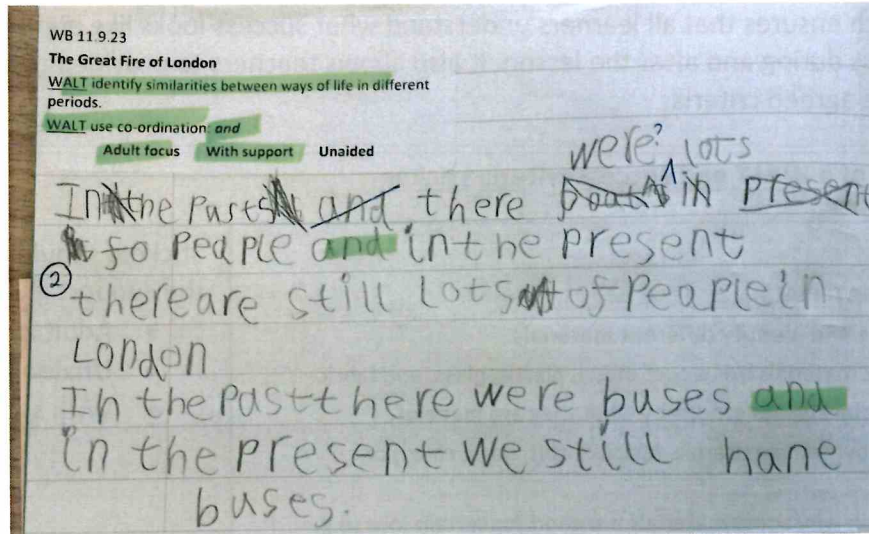 WB 11.9.23
The Great Fire of London
WALT identify similarities between ways of life in different
periods.
WALT use co-ordination: and
Adult focus With support Unaided
were? lots
In the Past and there boats in Present
fo PeaPle and in the Present
2
there are still lots of PeaPle in
London
In the Past there were buses and
in the Present we still hane
buses.